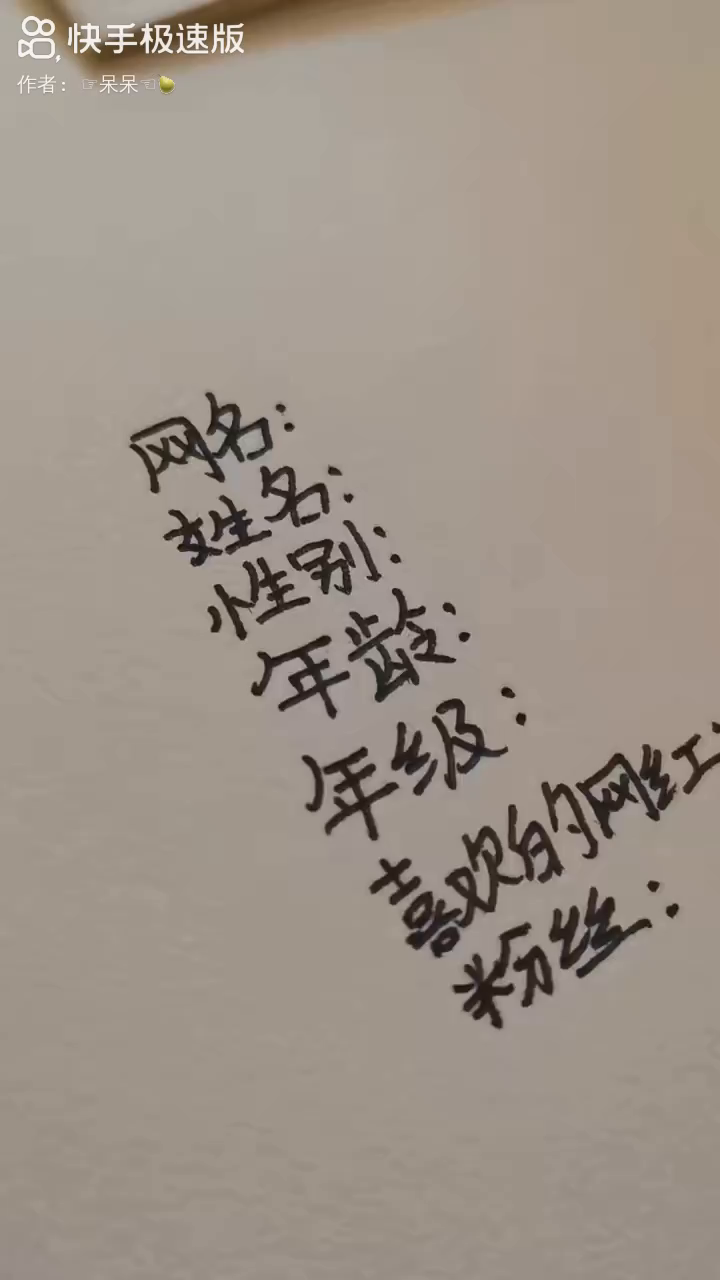 快手极速版
作者：☞呆呆☜🍐
网名：
姓名：
性别：
年龄：
年级：
喜欢的网红：
粉丝：